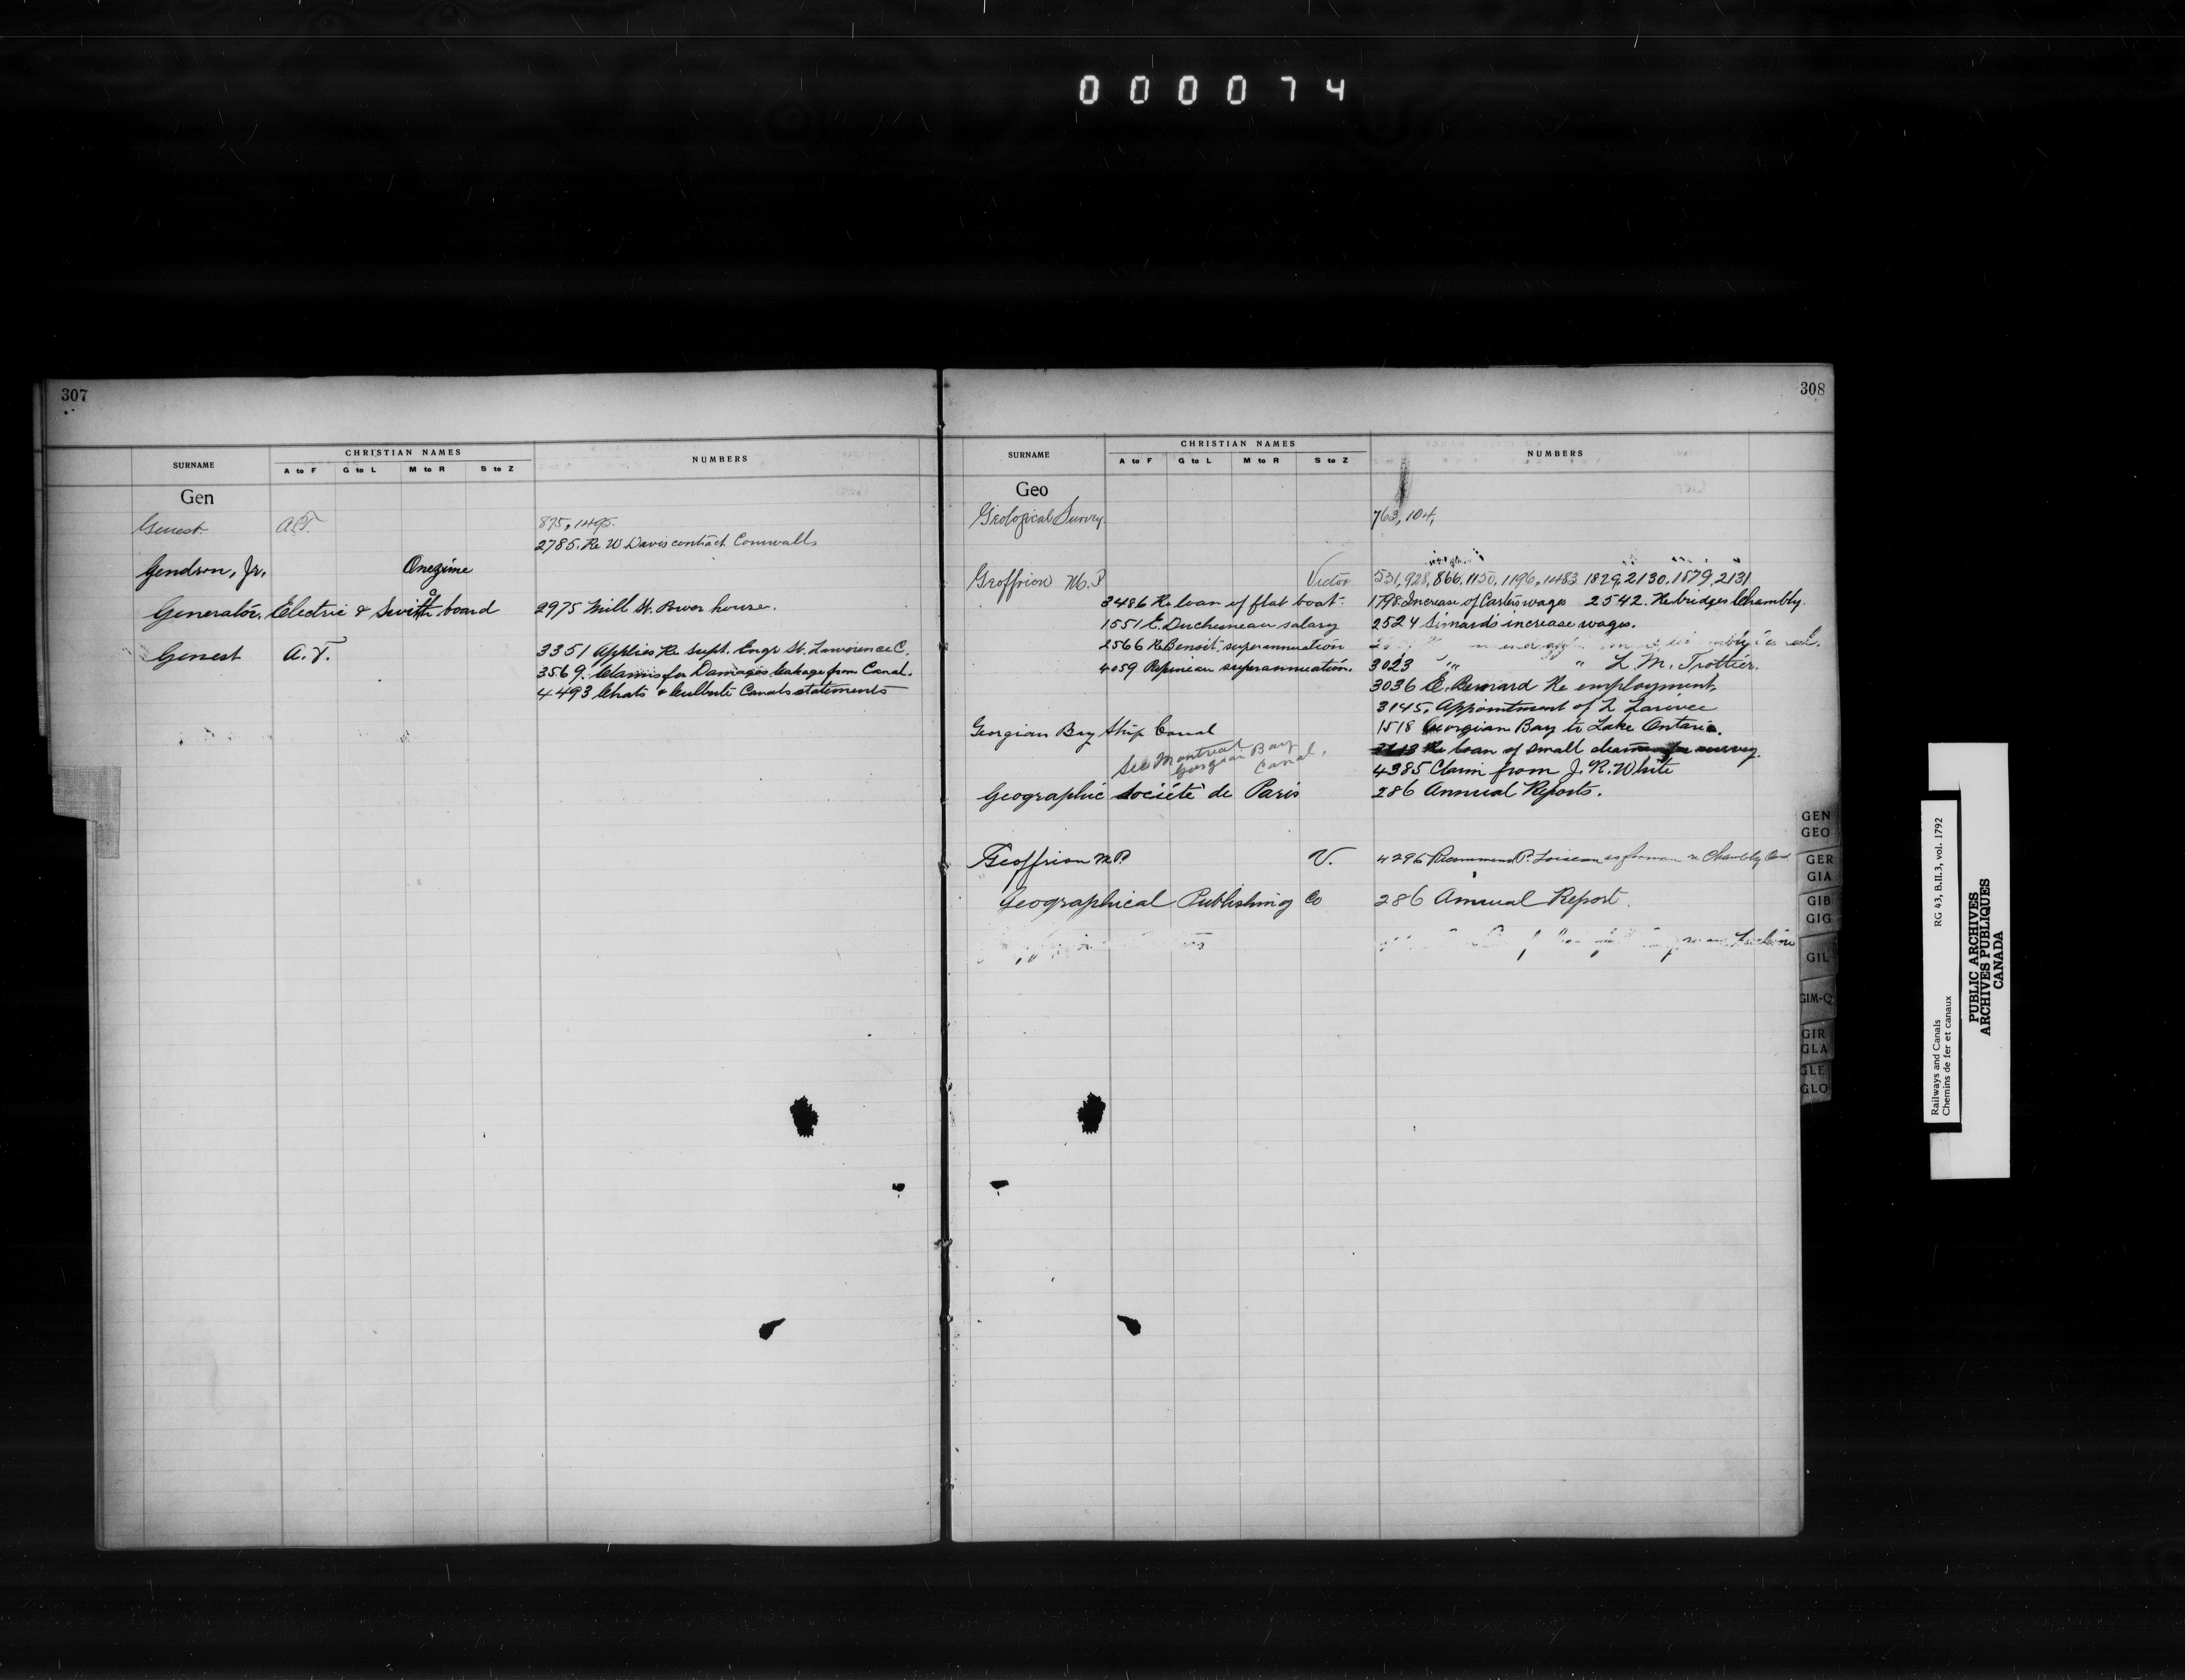 000074
307
SURNAME CHRISTIAN NAMES NUMBERS
A to F G to L M to R S to Z
Gen
Genest A.T. 875, 1495.
2785. Re W Davis contract Cornwall
Gendron, Jr. Onezime
Generator, Electric & Switch board 2975 Mill St. Power house.
Genest A.T. 3351 Applies Re Supt. Engr St. Lawrence C.
3569. Claims for Damages leakage from Canal.
4493 Chats & Culbute Canals statements
308
SURNAME CHRISTIAN NAMES NUMBERS
A to F G to L M to R S to Z
Geo
Geological Survey 763, 104,
Geoffrion M.P Victor 531, 928, 866, 1150, 1196, 1483 1829, 2130, 1879, 2131
3486 Re loan of flat boat. 1798. Increase of Carters wages 2542. Re bridges Chambly.
1551 E. Ducheneau salary 2524 Simards increase wages.
2566 Re Benoit, superannuation
4059 superannuation. 3023 " " L M. Trottier.
3036 E. Bernard Re employment.
3145. Appointment of L Larivee
Georgian Bay Ship Canal 1518 Georgian Bay to Lake Ontario.
See Montreal Georgian Bay Canal. Re loan of small survey.
4385 Claim from J. R. White
Geographic Société de Paris 286 Annual Reports.
Geoffrion M.P. V. 4296 Recommend P. Loiseau as foreman Chambly Canal
Geographical Publishing Co 286 Annual Report.
GEN
GEO
GER
GIA
GIB
GIG
GIL
GIM-Q
GIR
GLA
GLE
GLO
Railways and Canals RG 43, B.II.3, vol. 1792
Chemins de fer et canaux
PUBLIC ARCHIVES
ARCHIVES PUBLIQUES
CANADA